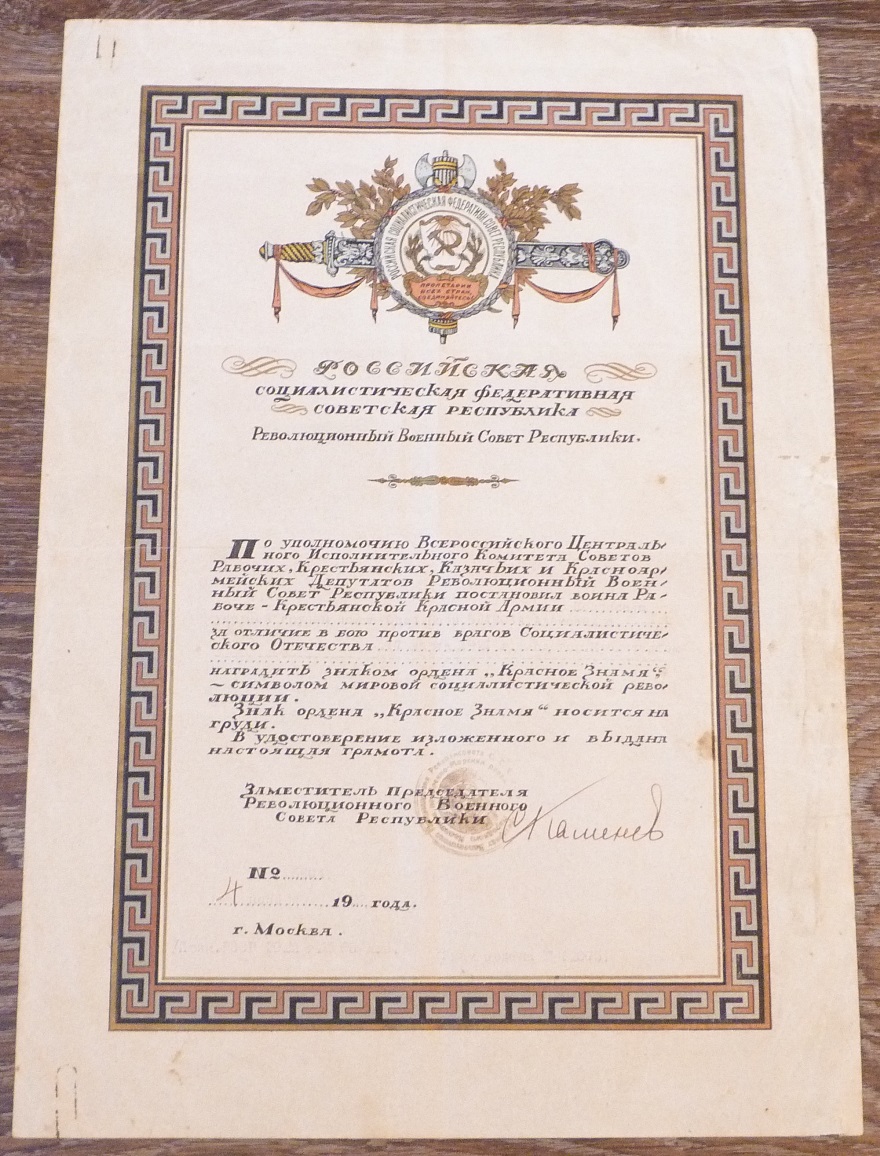 РОССИЙСКАЯ СОЦИАЛИСТИЧЕСКАЯ ФЕДЕРАТИВН. СОВЕТ. РЕСПУБЛИКА
ПРОЛЕТАРИИ
ВСЕХ СТРАН,
СОЕДИНЯЙТЕСЬ!
РОССИЙСКАЯ
СОЦИАЛИСТИЧЕСКАЯ ФЕДЕРАТИВНАЯ
СОВЕТСКАЯ РЕСПУБЛИКА
Революционный Военный Совет Республики.
По уполномочию Всероссийского Централь-
ного Исполнительного Комитета Советов
Рабочих, Крестьянских, Казачьих и Красноар-
мейских Депутатов Революционный Воен-
ный Совет Республики постановил воина Ра-
боче-Крестьянской Красной Армии
за отличие в бою против врагов Социалистиче-
ского Отечества
наградить знаком ордена „Красное Знамя“
~ символом мировой социалистической рево-
люции.
Знак ордена „Красное Знамя“ носится на
груди.
В удостоверение изложенного и выдана
настоящая грамота.
Заместитель Председателя
Революционного Военного
Совета Республики
С Каменев
№
4 19 года.
г. Москва.